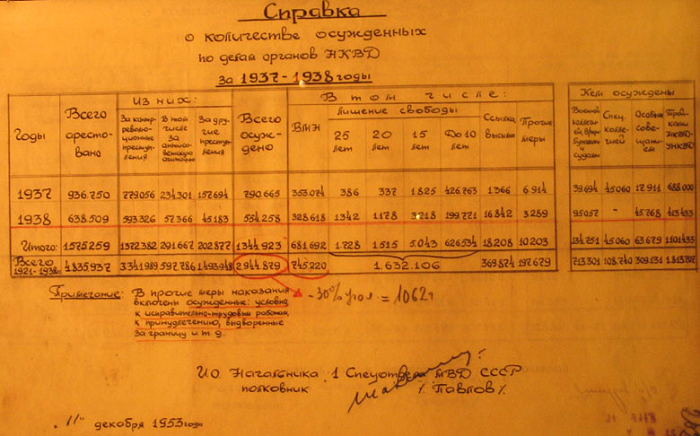 Справка
о количестве осужденных
по делам органов НКВД
за 1937-1938 годы
Годы
Всего аресто-вано
Из них:
За контр-револю-ционные преступ-ления
В том числе за антисо-ветскую агитацию
За дру-гие преступ-ления
Всего осуж-дено
В том числе:
ВМН
лишение свободы
25 лет
20 лет
15 лет
До 10 лет
Ссылка высылка
Прочие меры
Кем осуждены
Спец. коллегией
Особым сове-щанием
1937 936.750 779056 234301 157694 790.665 353.074 386 337 1825 426763 1.366 6.914 39694 45.060 17.911 688.000
1938 638.509 593326 57.366 45183 554.258 328.618 1342 1178 3218 199.771 16.842 3.289 95057 - 45.768 413.433
Итого: 1575259 1372382 291.667 202877 1344923 681.692 1.728 1.515 5.043 626534 18208 10.203 134.751 45.060 63679 1101433
Всего 1921-1938 4835937 3341989 597.786 1493948 2944879 745.220 1.632.106 369.874 197.679 713.301 108.740
Примечание: В прочие меры наказания
включены осужденные: условно,
к исправительно-трудовым работам,
к принудлечению, выдворенные
за границу и т д.
-30% угол. =
И О Начальника 1 Спецотдела МВД СССР
полковник /Павлов/
"11" декабря 1953 года